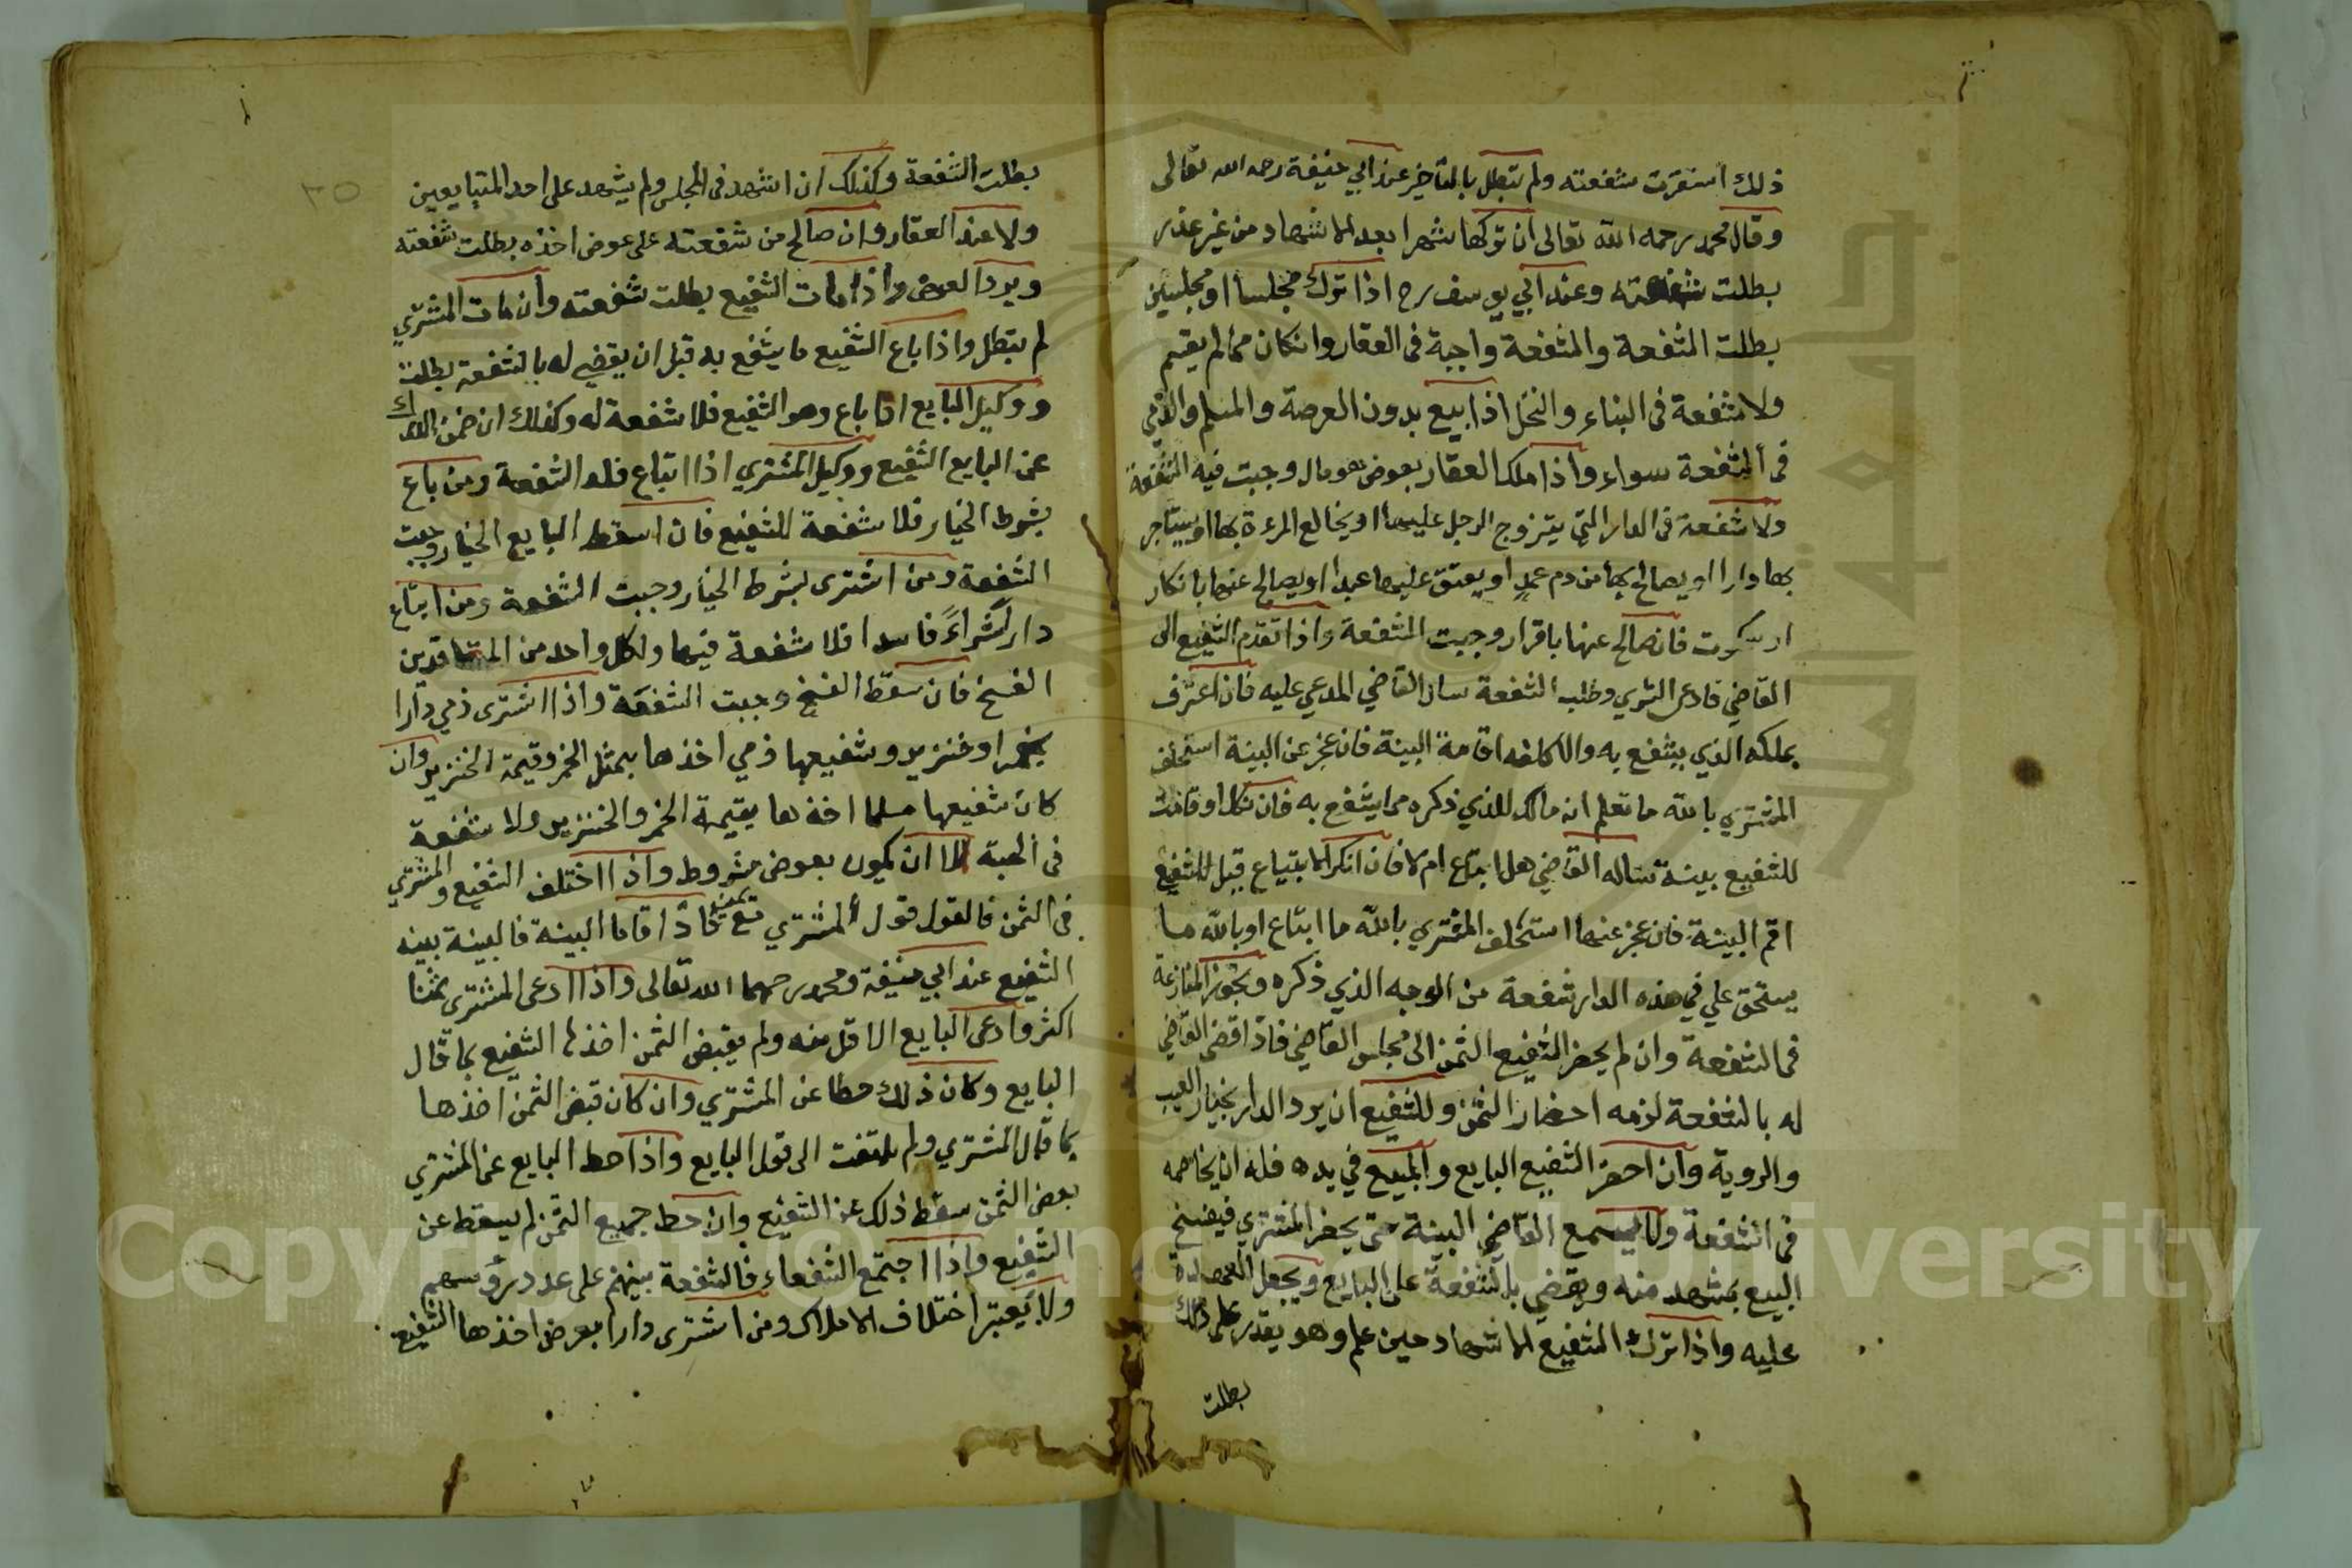 ذلك استقرت شفعته ولم تبطل بالتاخير عند ابي حنيفة رحمه الله تعالى
وقال محمد رحمه الله تعالى ان تركها شهرا بعد الاشهاد من غير عذر
بطلت شفعته وعند ابي يوسف رح اذا ترك مجلسا او مجلسين
بطلت الشفعة والشفعة واجبة فى العقار وانكان مما لم يقسم
ولا شفعة فى البناء والنخل اذا بيع بدون العرصة والمسلم والذمي
فى الشفعة سواء واذا ملك العقار بعوض هو مال وجبت فيه الشفعة
ولا شفعة فى الدار التي يتزوج الرجل عليها او يخالع المرءة بها او يستاجر
بها دارا او يصالح بها من دم عمد او يعتق عليها عبدا او يصالح عنها بانكار
او سكوت فان صالح عنها باقرار وجبت الشفعة واذا تقدم الشفيع الى
القاضي فادعى الشري وطلب الشفعة سال القاضي المدعي عليه فان اعترف
بملكه الذي يشفع به والا كلفه اقامة البينة فان عجز عن البينة استحلف
المشتري بالله ما تعلم انه مالك للذي ذكره مما يشفع به فان نكل او قامت
للشفيع بينة ساله القاضي هل ابتاع ام لا فان انكر الابتياع قيل للشفيع
اقم البينة فان عجز عنها استحلف المشتري بالله ما ابتاع او بالله ما
يستحق علي في هذه الدار شفعة من الوجه الذي ذكره وتجوز المنازعة
فى الشفعة وان لم يحضر الشفيع الثمن الى مجلس القاضي فاذا قضى القاضي
له بالشفعة لزمه احضار الثمن وللشفيع ان يرد الدار بخيار العيب
والروية وان احضر الشفيع البايع والمبيع في يده فله ان يخاصمه
فى الشفعة ولا يسمع القاضي البينة حتى يحضر المشتري فيفسخ
البيع بمشهد منه ويقضي بالشفعة على البايع ويجعل العهدة
عليه واذا ترك الشفيع الاشهاد حين علم وهو يقدر على ذلك
بطلت
٣٥
بطلت الشفعة وكذلك ان اشهد فى المجلس ولم يشهد على احد المتبايعين
ولا عند العقار وان صالح من شفعته على عوض اخذه بطلت شفعته
ويرد العوض واذا مات الشفيع بطلت شفعته وان مات المشتري
لم تبطل واذا باع الشفيع ما يشفع به قبل ان يقضي له بالشفعة بطلت
ووكيل البايع اذا باع وهو الشفيع فلا شفعة له وكذلك ان ضمن الدرك
عن البايع الشفيع ووكيل المشتري اذا ابتاع فله الشفعة ومن باع
بشرط الخيار فلا شفعة للشفيع فان اسقط البايع الخيار وجبت
الشفعة ومن اشترى بشرط الخيار وجبت الشفعة ومن ابتاع
دارا شراءً فاسدا فلا شفعة فيها ولكل واحد من المتعاقدين
الفسخ فان سقط الفسخ وجبت الشفعة واذا اشترى ذمي دارا
بخمر او خنزير وشفيعها ذمي اخذها بمثل الخمر وقيمة الخنزير وان
كان شفيعها مسلما اخذها بقيمة الخمر والخنزير ولا شفعة
فى الهبة الا ان يكون بعوض مشروط واذا اختلف الشفيع والمشتري
فى الثمن فالقول قول المشتري مع يمينه فاذا اقاما البينة فالبينة بينه
الشفيع عند ابي حنيفة ومحمد رحمهما الله تعالى واذا ادعى المشترى ثمنا
اكثر وادعى البايع الاقل منه ولم يقبض الثمن اخذها الشفيع بما قال
البايع وكان ذلك حطا عن المشتري وان كان قبض الثمن اخذها
بما قال المشتري ولم يلتفت الى قول البايع واذا حط البايع عن المشتري
بعض الثمن سقط ذلك عن الشفيع وان حط جميع الثمن لم يسقط عن
الشفيع واذا اجتمع الشفعاء فالشفعة بينهم على عدد رؤسهم
ولا يعتبر اختلاف الاملاك ومن اشترى دارا بعرض اخذها الشفيع
Copyright © King Saud University